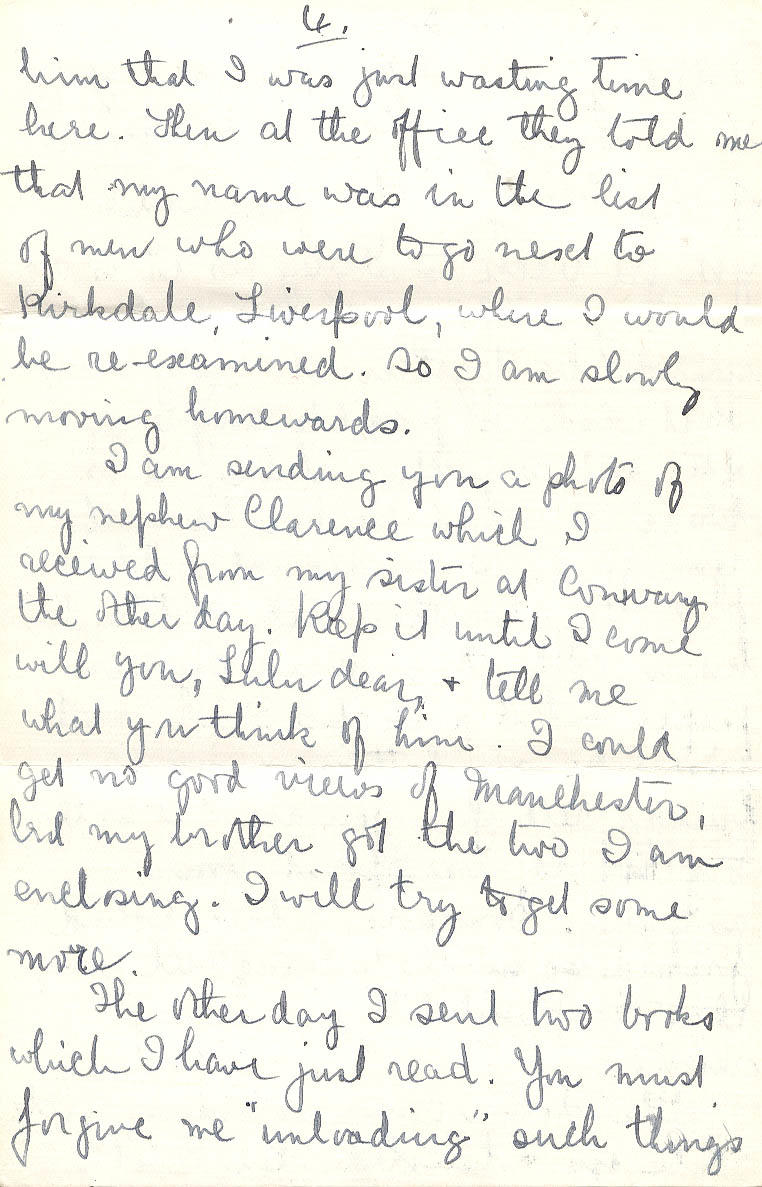 4.
him that I was just wasting time
here. Then at the office they told me
that my name was in the list
of men who were to go next to
Kirkdale, Liverpool, where I would
be re-examined. So I am slowly
moving homewards.
I am sending you a photo of
my nephew Clarence which I
received from my sister at Conway
the other day. Keep it until I come
will you, Lulu dear, + tell me
what you think of him. I could
get no good views of Manchester,
but my brother got the two I am
enclosing. I will try to get some
more.
The other day I sent two books
which I have just read. You must
forgive me "unloading" such things